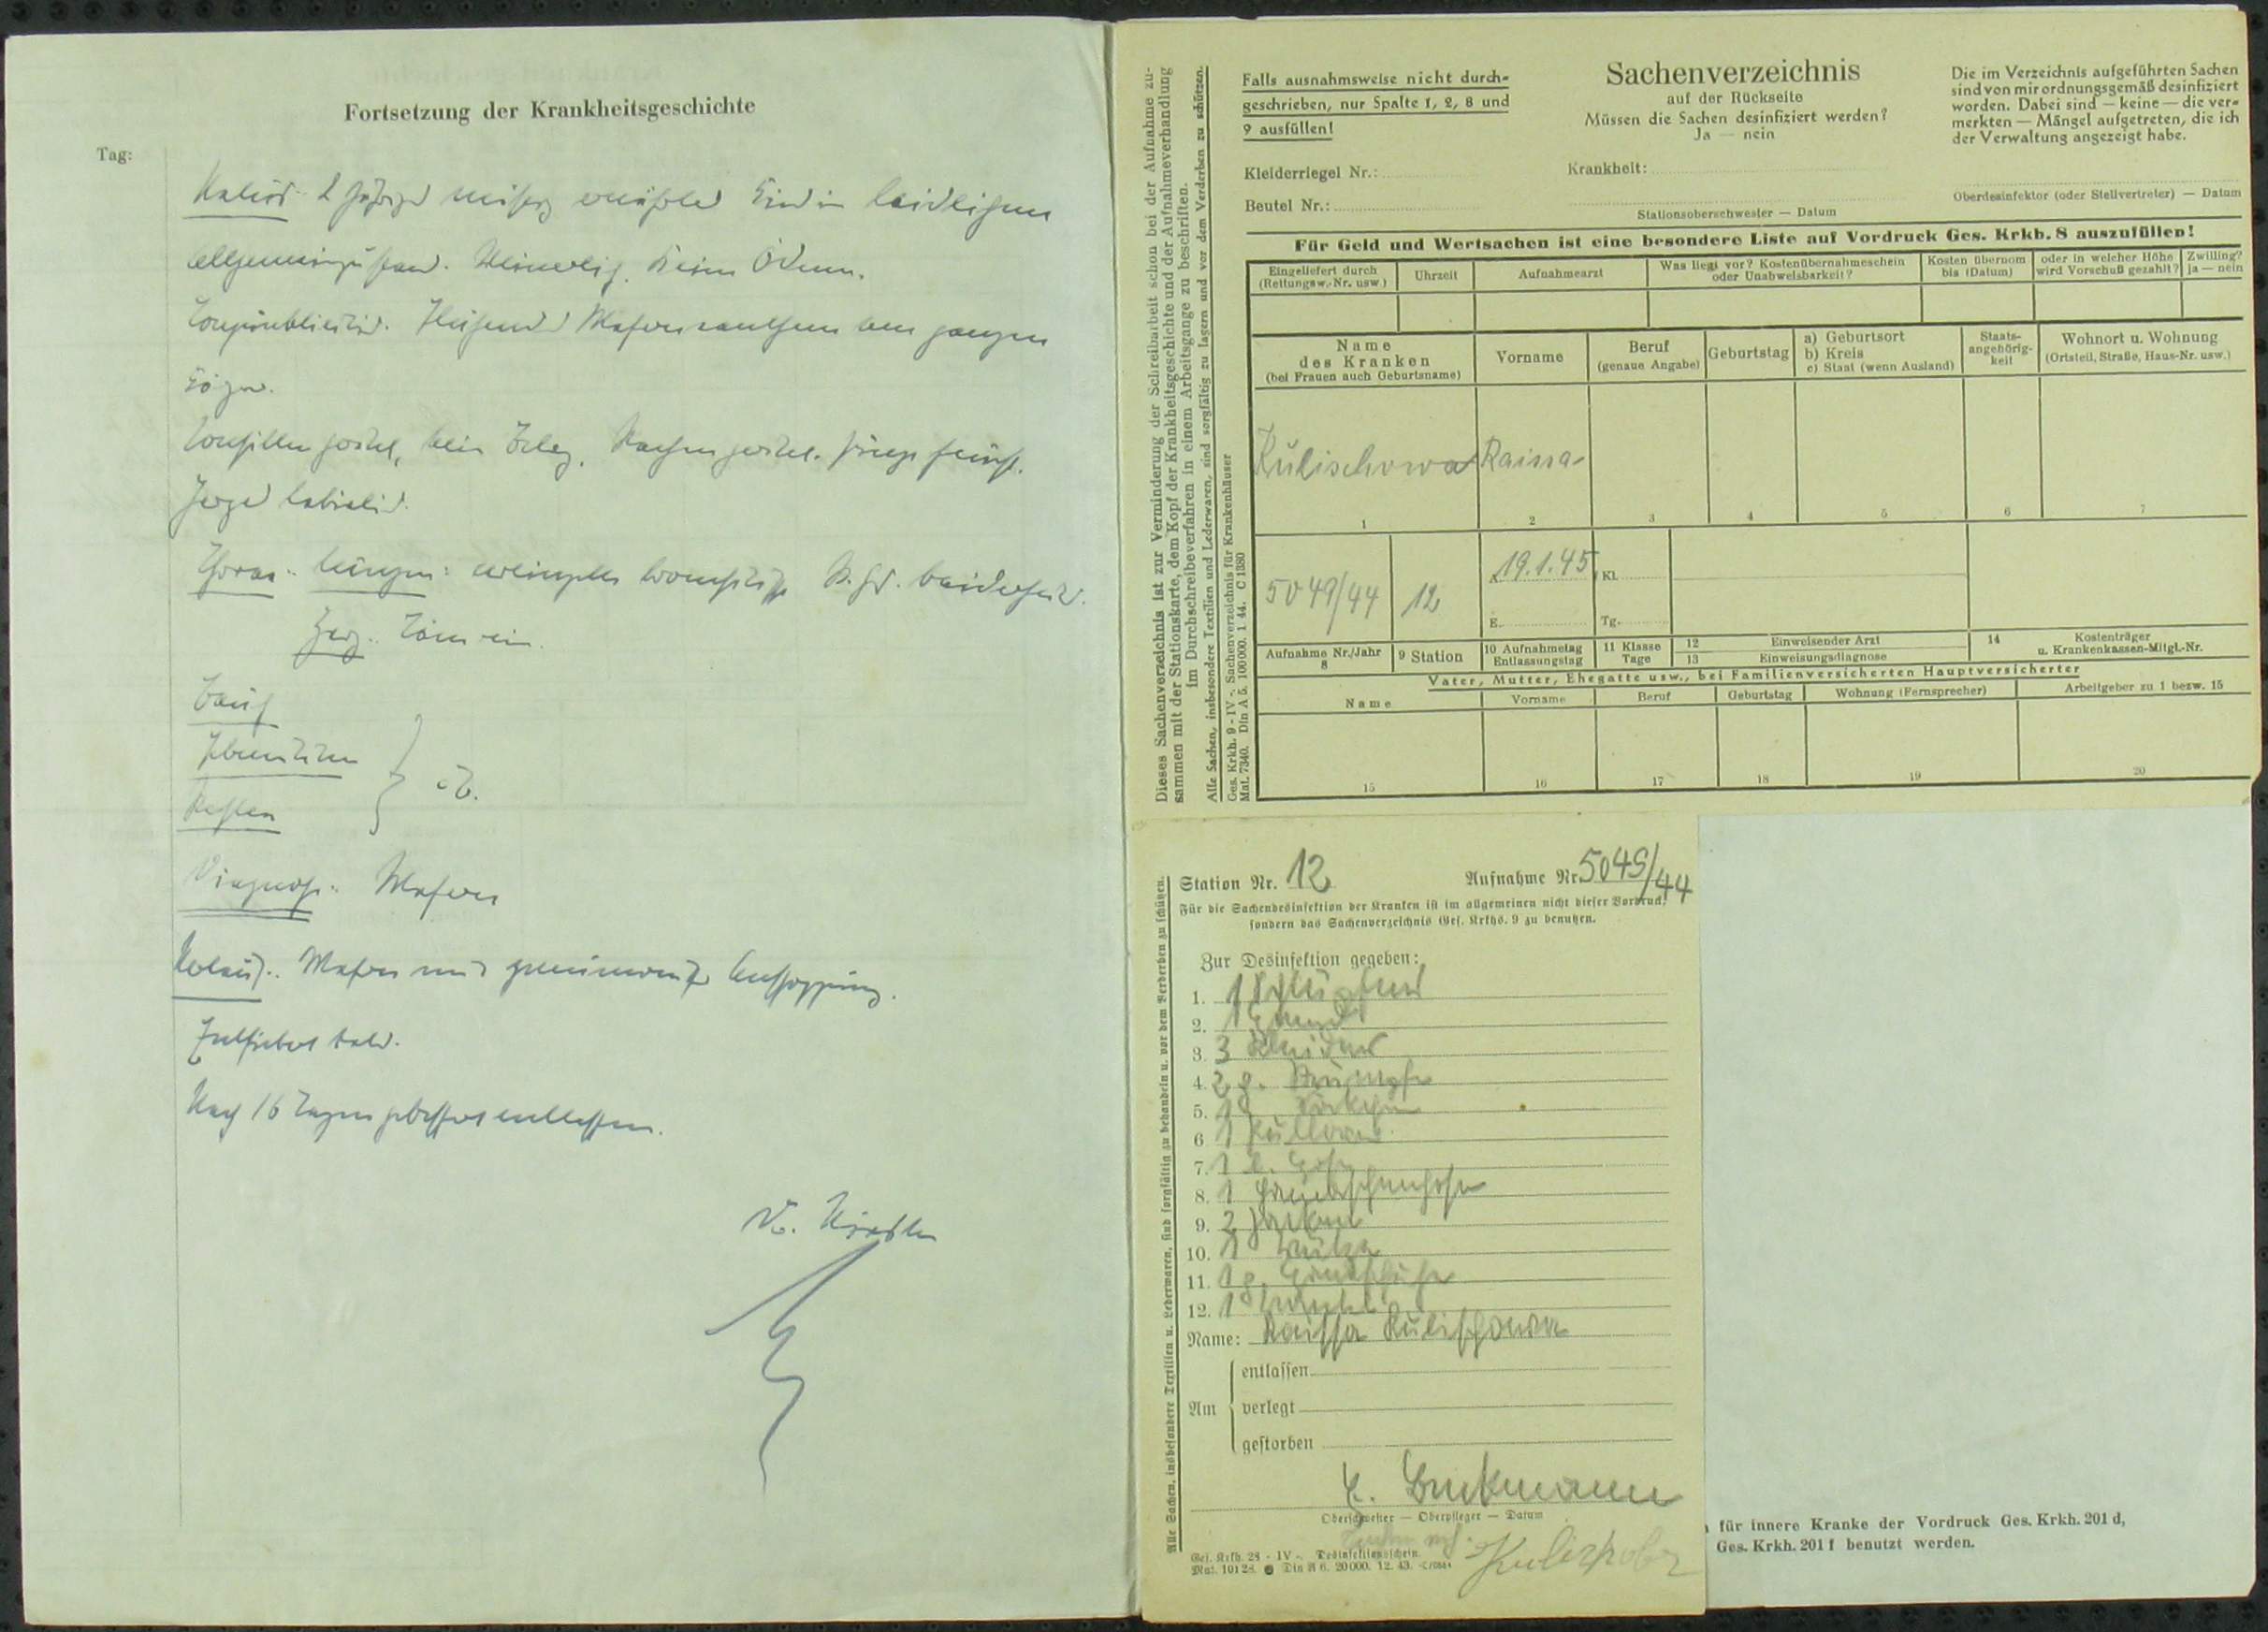 Fortsetzung der Krankheitsgeschichte
Tag:
2 jähriges mäßig ernährtes Kind in leidlichem
Allgemeinzustand. Keine Ödeme.
Masernexanthem am ganzen
Körper.
Tonsillen gerötet, kein Belag. Rachen gerötet. Zunge feucht.
Herpes labialis.
Thorax: Lungen: vereinzelte bronchitische R.G. beiderseits.
Herz: Töne rein.
Bauch
Extremitäten
Reflexe
o.B.
Diagnose: Masern
Verlauf: Masern mit
Entfiebert bald.
Nach 16 Tagen gebessert entlassen.
Dieses Sachenverzeichnis ist zur Verminderung der Schreibarbeit schon bei der Aufnahme zu-
sammen mit der Stationskarte, dem Kopf der Krankheitsgeschichte und der Aufnahmeverhandlung
im Durchschreibeverfahren in einem Arbeitsgange zu beschriften.
Alle Sachen, insbesondere Textilien und Lederwaren, sind sorgfältig zu lagern und vor dem Verderben zu schützen.
Ges. Krkh. 9 - IV -. Sachenverzeichnis für Krankenhäuser
Mat. 7340. Din A 5. 100000. 1 44. C 1380
Falls ausnahmsweise nicht durch-
geschrieben, nur Spalte 1, 2, 8 und
9 ausfüllen!
Kleiderriegel Nr.:
Beutel Nr.:
Sachenverzeichnis
auf der Rückseite
Müssen die Sachen desinfiziert werden?
Ja — nein
Krankheit:
Stationsoberschwester — Datum
Die im Verzeichnis aufgeführten Sachen
sind von mir ordnungsgemäß desinfiziert
worden. Dabei sind — keine — die ver-
merkten — Mängel aufgetreten, die ich
der Verwaltung angezeigt habe.
Oberdesinfektor (oder Stellvertreter) — Datum
Für Geld und Wertsachen ist eine besondere Liste auf Vordruck Ges. Krkb. 8 auszufüllen!
Eingeliefert durch
(Rettungsw.-Nr. usw.)
Uhrzeit
Aufnahmearzt
Was liegt vor? Kostenübernahmeschein
oder Unabweisbarkeit?
Kosten übernom
bis (Datum)
oder in welcher Höhe
wird Vorschuß gezahlt?
Zwilling?
ja — nein
Name
des Kranken
(bei Frauen auch Geburtsname)
Vorname
Beruf
(genaue Angabe)
Geburtstag
a) Geburtsort
b) Kreis
c) Staat (wenn Ausland)
Staats-
angehörig-
keit
Wohnort u. Wohnung
(Ortsteil, Straße, Haus-Nr. usw.)
Kulischowa Raissa
1 2 3 4 5 6 7
5049/44 12
A. 19.1.45 Kl.
E. Tg.
Aufnahme Nr./Jahr
8
9 Station
10 Aufnahmetag
Entlassungstag
11 Klasse
Tage
12 Einweisender Arzt
13 Einweisungsdiagnose
14 Kostenträger
u. Krankenkassen-Mitgl.-Nr.
Vater, Mutter, Ehegatte usw., bei Familienversicherten Hauptversicherter
Name Vorname Beruf Geburtstag Wohnung (Fernsprecher) Arbeitgeber zu 1 bezw. 15
15 16 17 18 19 20
Station Nr. 12 Aufnahme Nr. 5049/44
Für die Sachendesinfektion der Kranken ist im allgemeinen nicht dieser Vordruck,
sondern das Sachenverzeichnis Ges. Krkhs. 9 zu benutzen.
Zur Desinfektion gegeben:
1. 1
2. 1 Hemd
3. 3 Kleider
4. 2 p. Strümpfe
5. 1
6. 1 Pullover
7. 1 Hose
8. 1 Gamaschenhose
9. 2 Jacken
10. 1 Mütze
11. 1 p. Handschuhe
12. 1 Mantel
Name: Raissa Kulischowa
Am
entlassen
verlegt
gestorben
Oberschwester — Oberpfleger — Datum
Ges. Krkh. 28 - IV -. Desinfektionsschein.
Mat. 10128. Din A 6. 20000. 12. 43.
für innere Kranke der Vordruck Ges. Krkh. 201 d,
Ges. Krkh. 201 f benutzt werden.